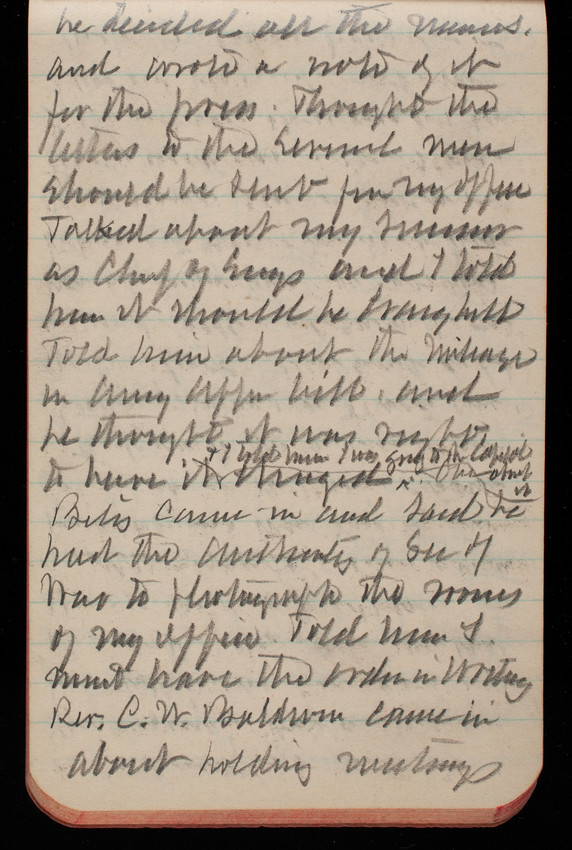 he decided all the names.
and wrote a note of it
for the press. Thought the
letters to the several men
should be sent from my office
Talked about my successor
as Chf of Engs and I told
him it should be Craighill
Told him about the Mileage
in Army Appn bill, and
he thought it was right
+ I told him I was going to the Capitol
to have it changed about
it
Betts came in and said he
had the authority of Sec of
War to photograph the rooms
of my office Told him I
must have the order in writing
Rev. C. W. Baldwin came in
about holding meetings